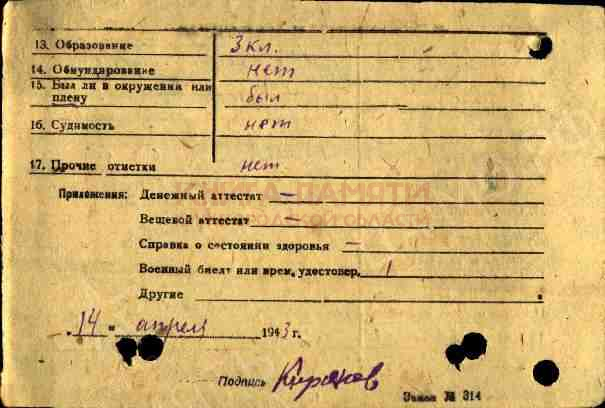 13. Образование 3 кл.
14. Обмундирование нет
15. Был ли в окружении или
плену был
16. Судимость нет
17. Прочие отметки нет
Приложения: Денежный аттестат —
Вещевой аттестат —
Справка о состоянии здоровья —
Военный билет или врем. удостовер. 1
Другие
"14" апреля 1943 г.
Подпись
Заказ № 314